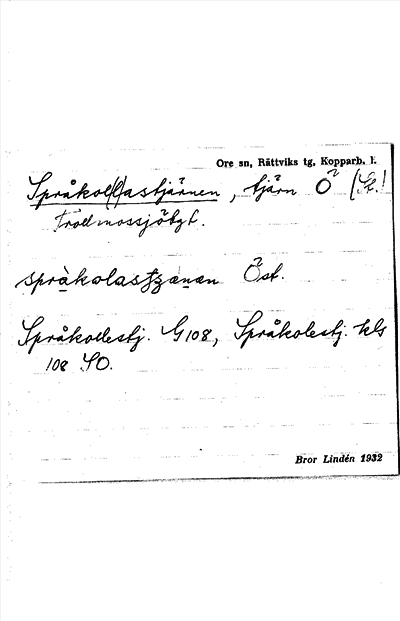 Ore sn, Rättviks tg, Kopparb. l.
Språkol(l)astjärnen, tjärn Ö
Trollmossjöbgt.
språkolastjzænæn Öst.
Språkollestj. G108, Språkolestj. kls
108 SO.
Bror Lindén 1932